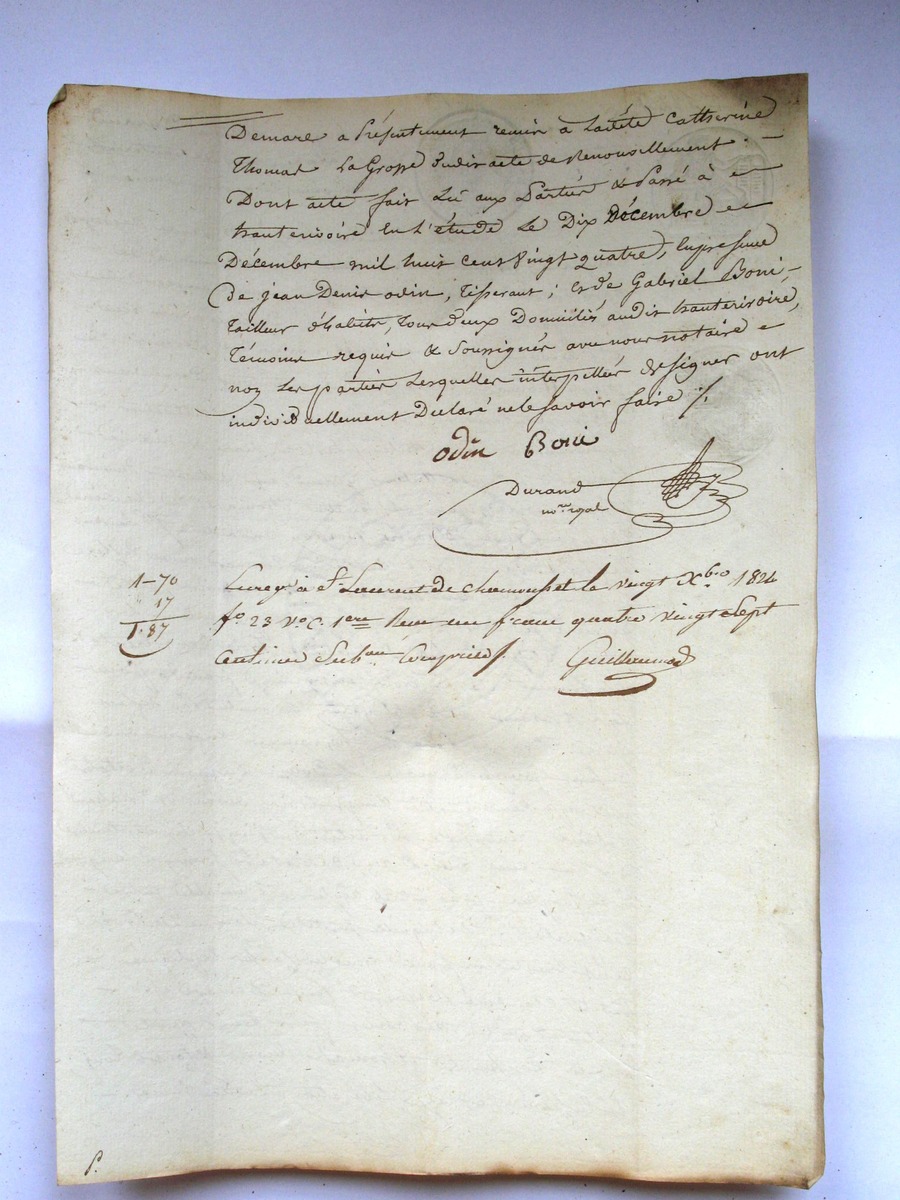 Demare a Présentement remis à Ladite Catherine
Thomas La Grosse dudit acte de Renouvellement. –
Dont acte fait Lû aux Parties & Passé à
hauterivoire En l'étude Le Dix Décembre
Décembre mil huit cent Vingt quatre, En présence
De jean Denis odin, Tisserant; Et de Gabriel Boni,
Tailleur d'habits, Tous deux Domiciliés audit hauterivoire,
Témoins requis & Soussignés avec nous notaire
non Les parties Lesquelles interpellées de signer ont
individuellement Déclaré ne le savoir faire /.
odin Boni
Durand
no.re royal
1-70
17
1.87
Enreg.é à St. Laurent de chamousset le vingt Xbre 1824
fo. 23 Vo. C. 1ere Reçu un franc quatre vingt Sept
Centimes Sub.on Comprise /.
Guillermod
P.